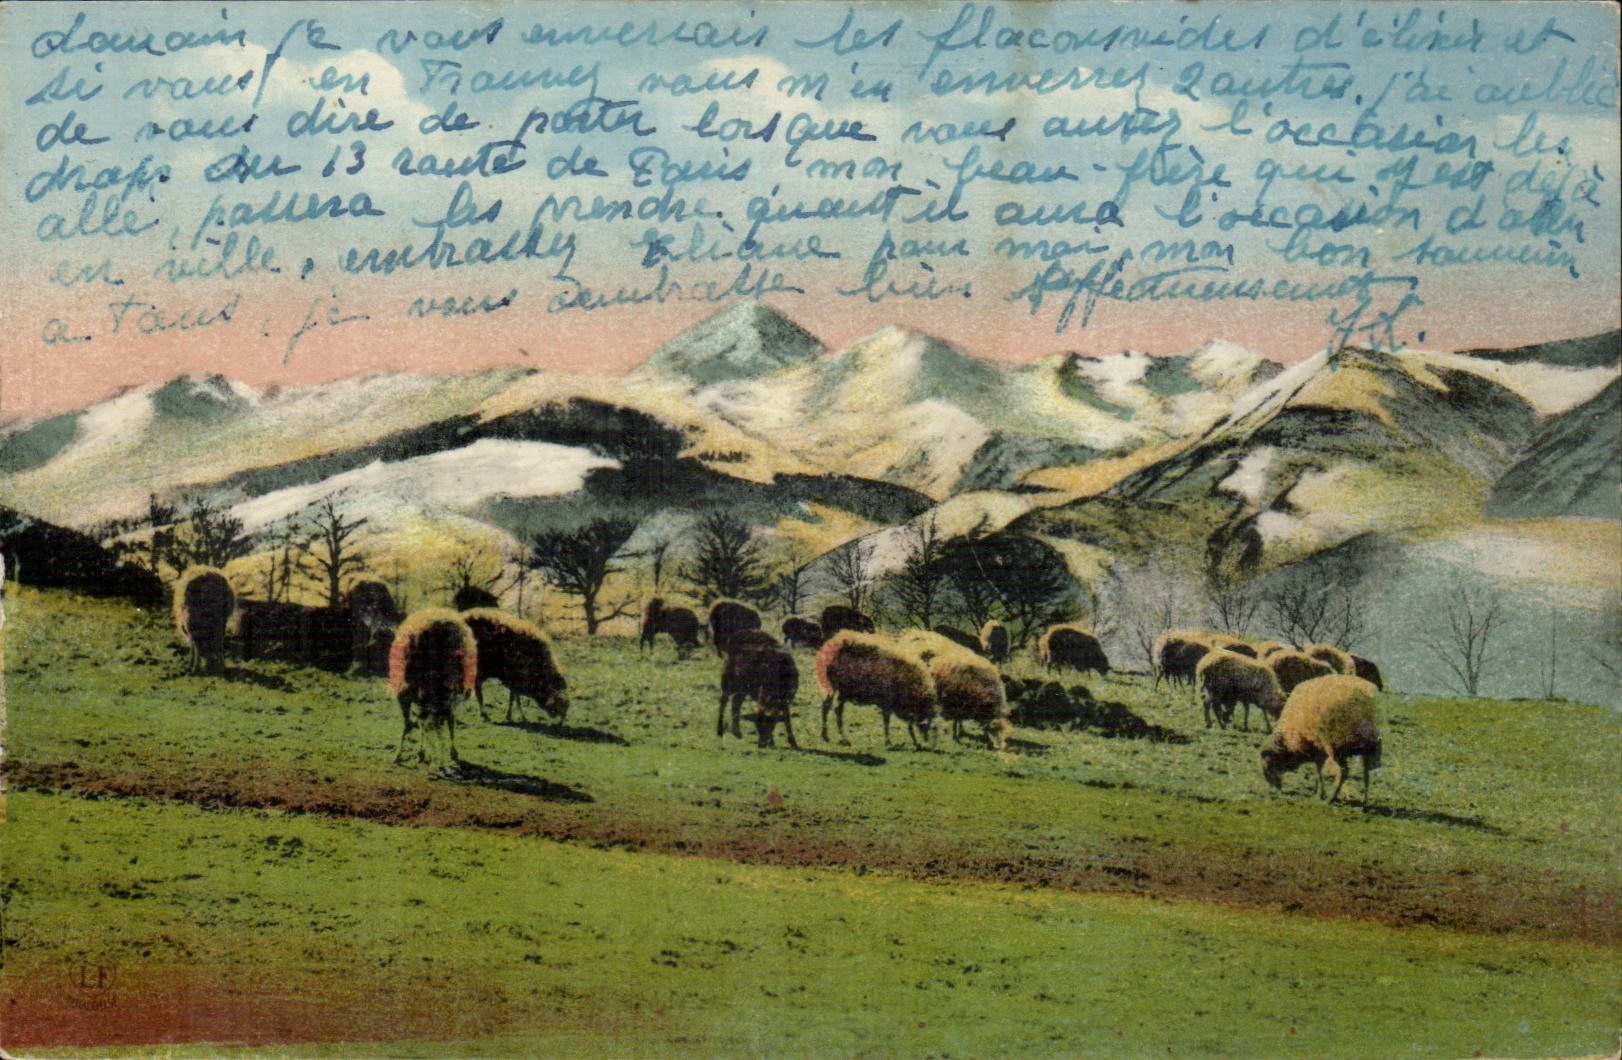 demain je vous enverrais les flacons vides d'élixir et
si vous en trouvez vous m'en enverrez 2 autres. j'ai oublié
de vous dire de porter lorsque vous aurez l'occasion les
draps au 13 route de Paris mon beau-frère qui y est déjà
allé, passera les prendre quant il aura l'occasion d'aller
en ville, embrassez Eliane pour moi, mon bon souvenir
a Tous, je vous embrasse bien Affectueusement
LF
TOULOUSE